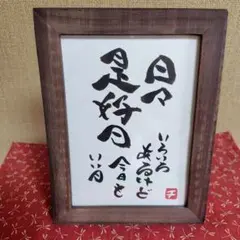 日々
是好日
いろいろ
あるけど
今日も
いい日
千